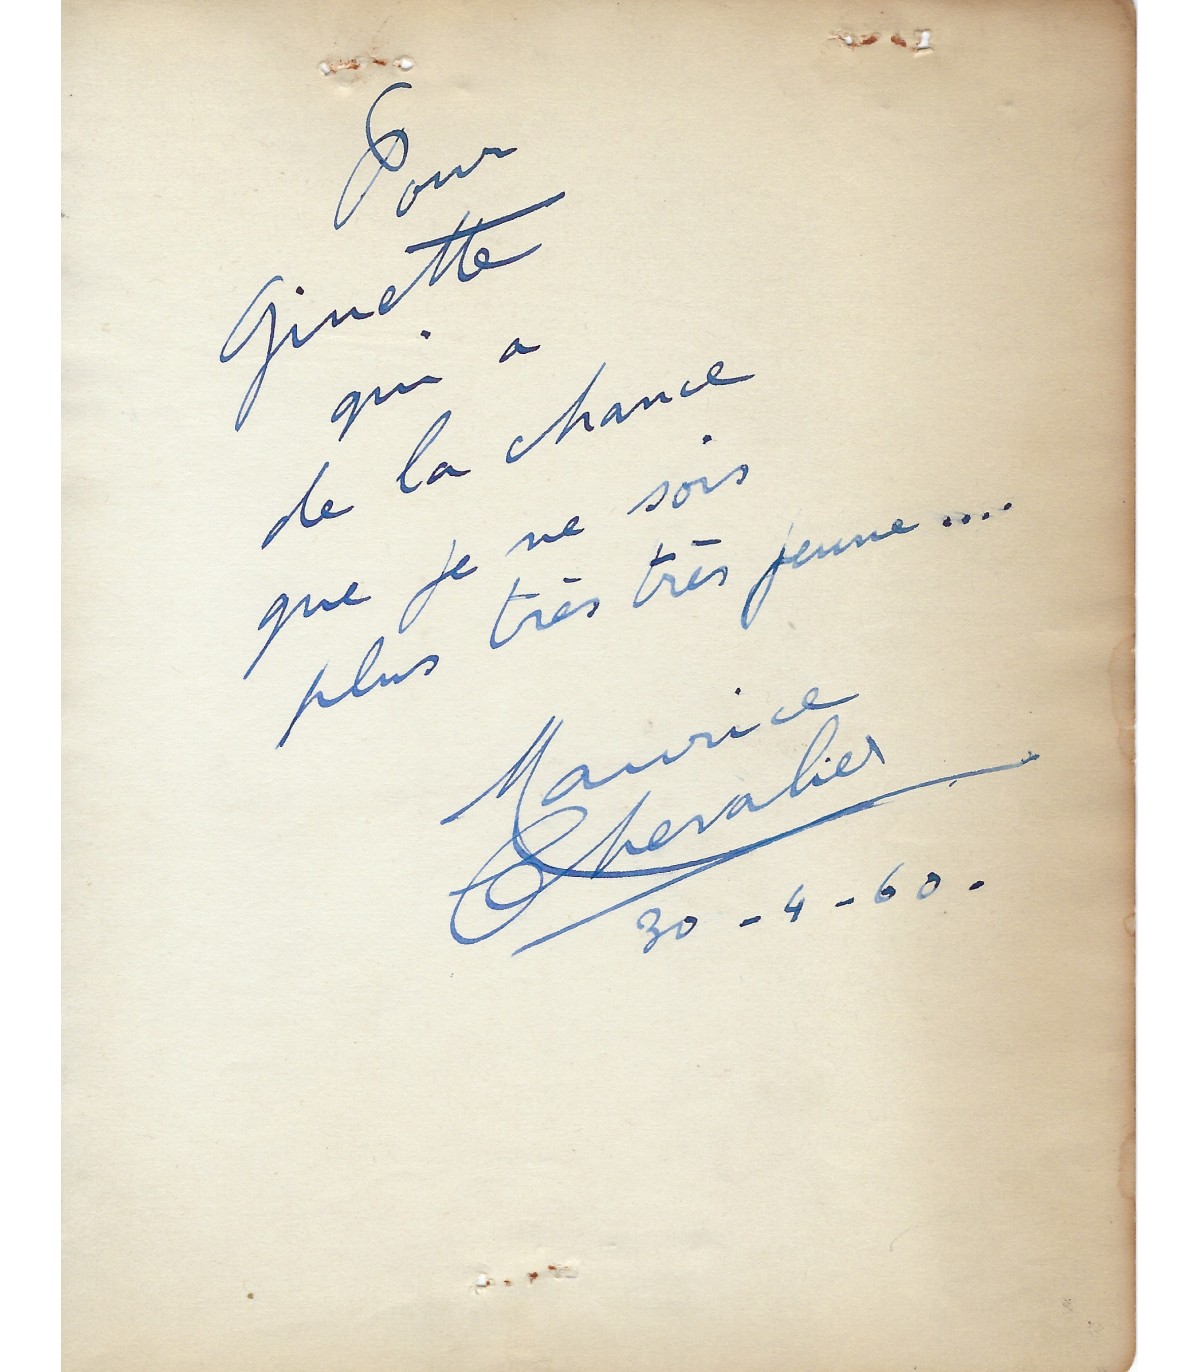 Pour
Ginette
qui a
de la chance
que je ne sois
plus très très jeune....
Maurice
Chevalier
30-4-60.